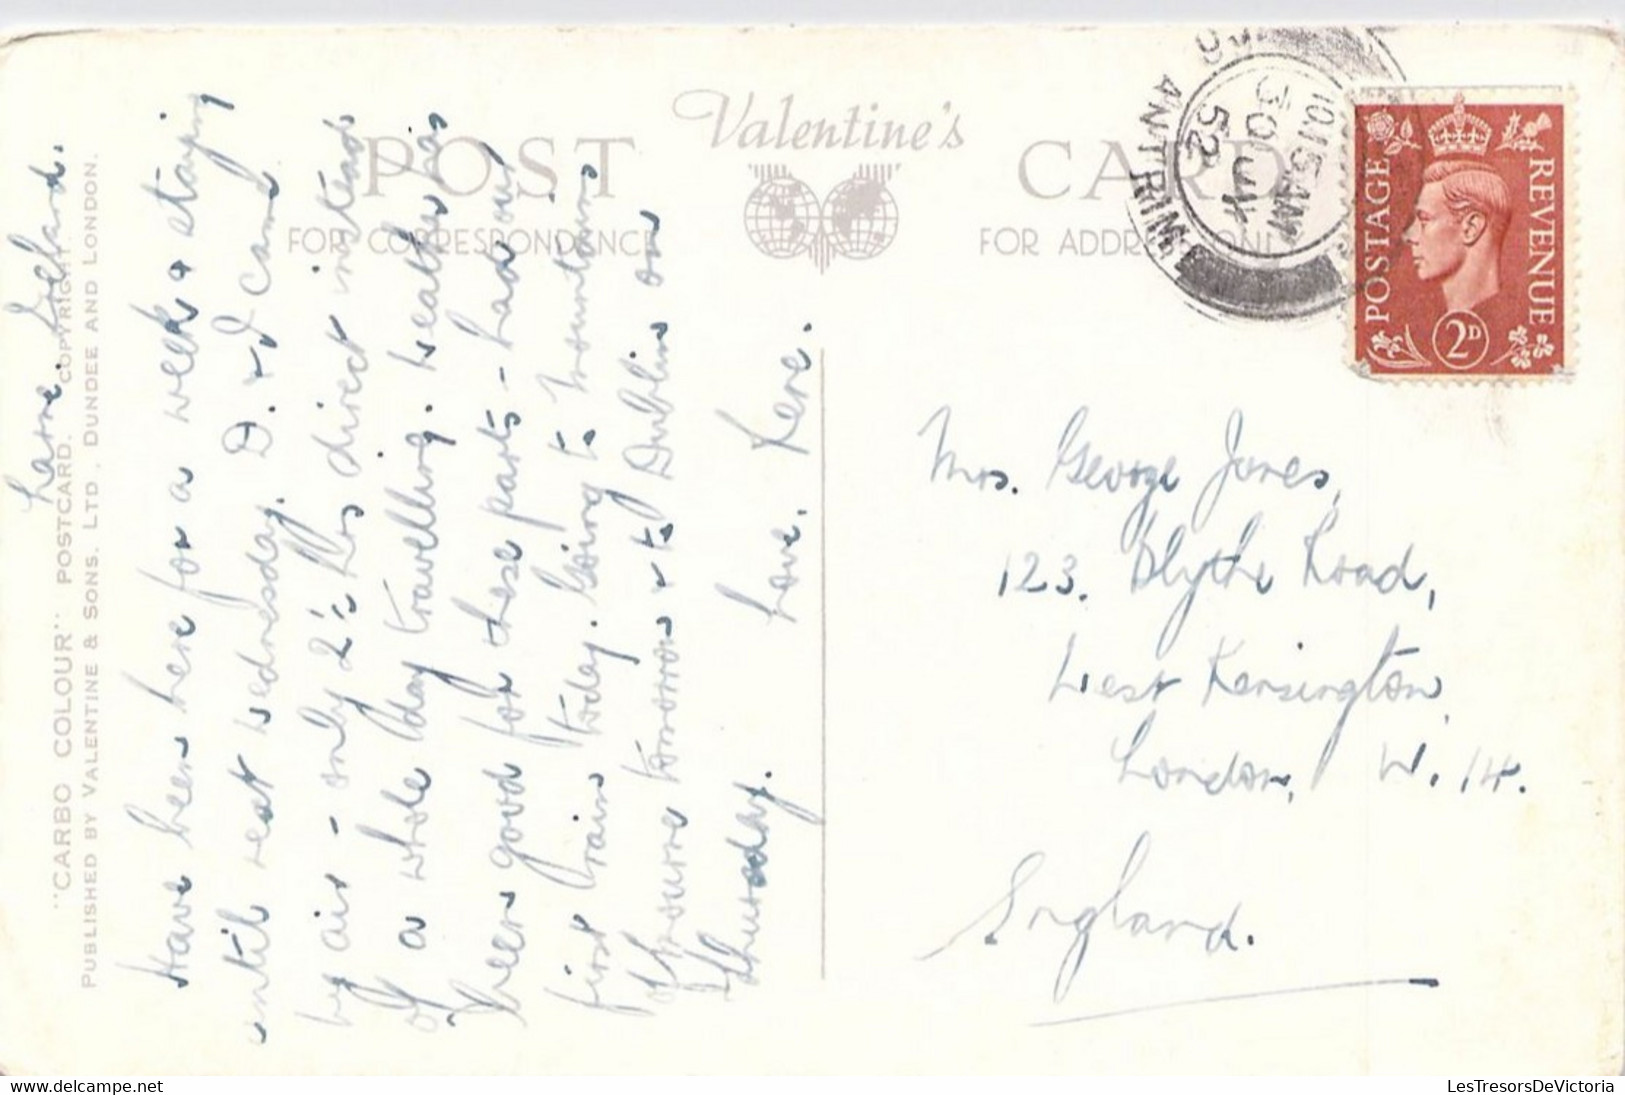 Valentine's
POST CARD
FOR CORRESPONDENCE
FOR ADDRESS ONLY
"CARBO COLOUR" POSTCARD. COPYRIGHT.
PUBLISHED BY VALENTINE & SONS. LTD., DUNDEE AND LONDON.
Larne. Ireland.
Have been here for a week & staying
until next Wednesday. D. & I came
by air - only 2½ hrs direct instead
of a whole day travelling. Weather has
been good for these parts - had our
first rain today. Going to mountains
of Mourne tomorrow & to Dublin on
Thursday.
Love,
10.15 AM
30 JY
52
ANTRIM
POSTAGE
REVENUE
2D
Mrs. George Jones,
123. Blythe Road,
West Kensington,
London, W. 14.
England.
www.delcampe.net
LesTresorsDeVictoria